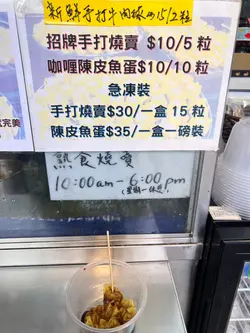 新鮮手打牛肉球
招牌手打燒賣 $10/5 粒
咖喱陳皮魚蛋 $10/10 粒
急凍裝
手打燒賣$30/一盒 15 粒
陳皮魚蛋$35/一盒一磅裝
完美
熟食燒賣
10:00am - 6:00pm